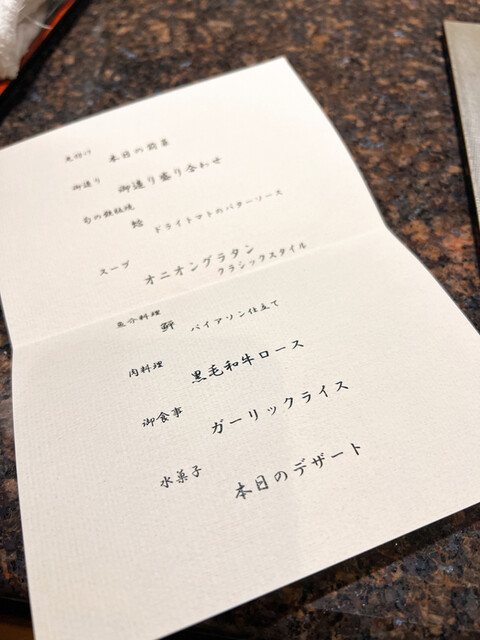 先付け 本日の前菜
御造り 御造り盛り合わせ
旬の鉄板焼 鮑 ドライトマトのバターソース
スープ オニオングラタン
クラシックスタイル
魚介料理 鰤 バイアソン仕立て
肉料理 黒毛和牛ロース
御食事 ガーリックライス
水菓子 本日のデザート